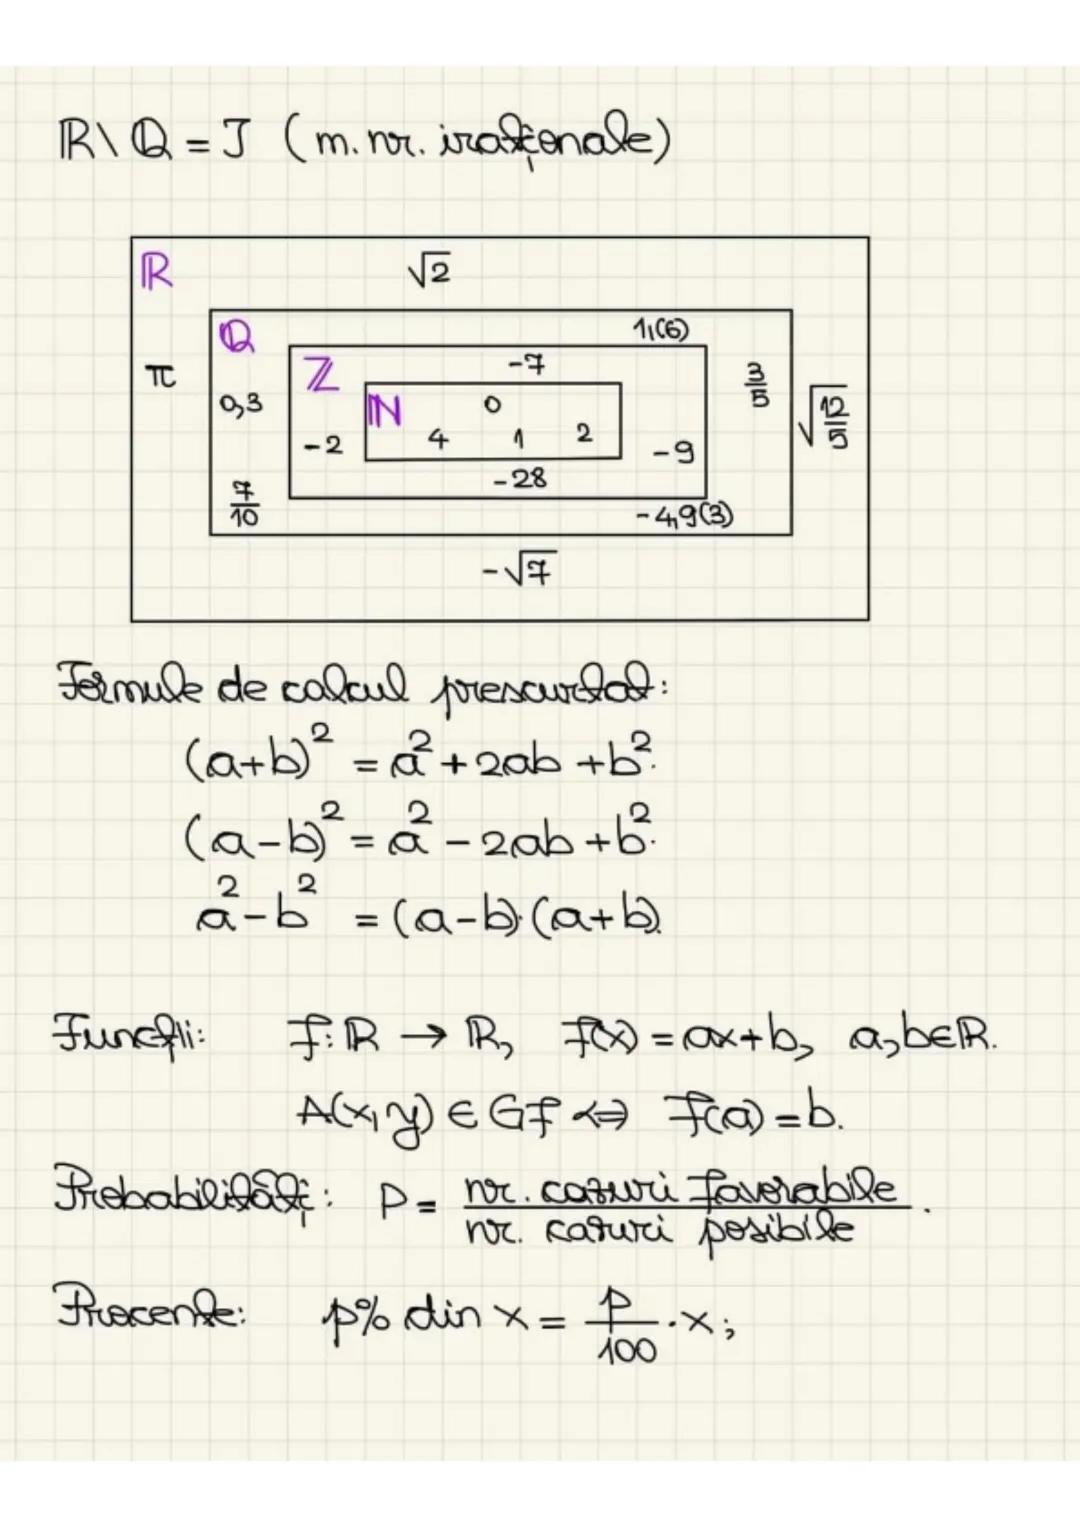 ℝ\ℚ = I (m. nr. iraționale)
ℝ √2
ℚ 1,(6)
ℤ -7
π 0,3 ℕ 0 3/5 √(12/5)
-2 4 1 2 -9
-28
7/10 -4,9(3)
-√7
Formule de calcul prescurtat:
(a+b)² = a² + 2ab + b².
(a-b)² = a² - 2ab + b².
a² - b² = (a-b)·(a+b).
Funcții: f: ℝ → ℝ, f(x) = ax+b, a,b∈ℝ.
A(x,y) ∈ Gf ⇔ f(a) = b.
Probabilități: P = nr. cazuri favorabile / nr. cazuri posibile.
Procente: p% din x = p/100 · x;